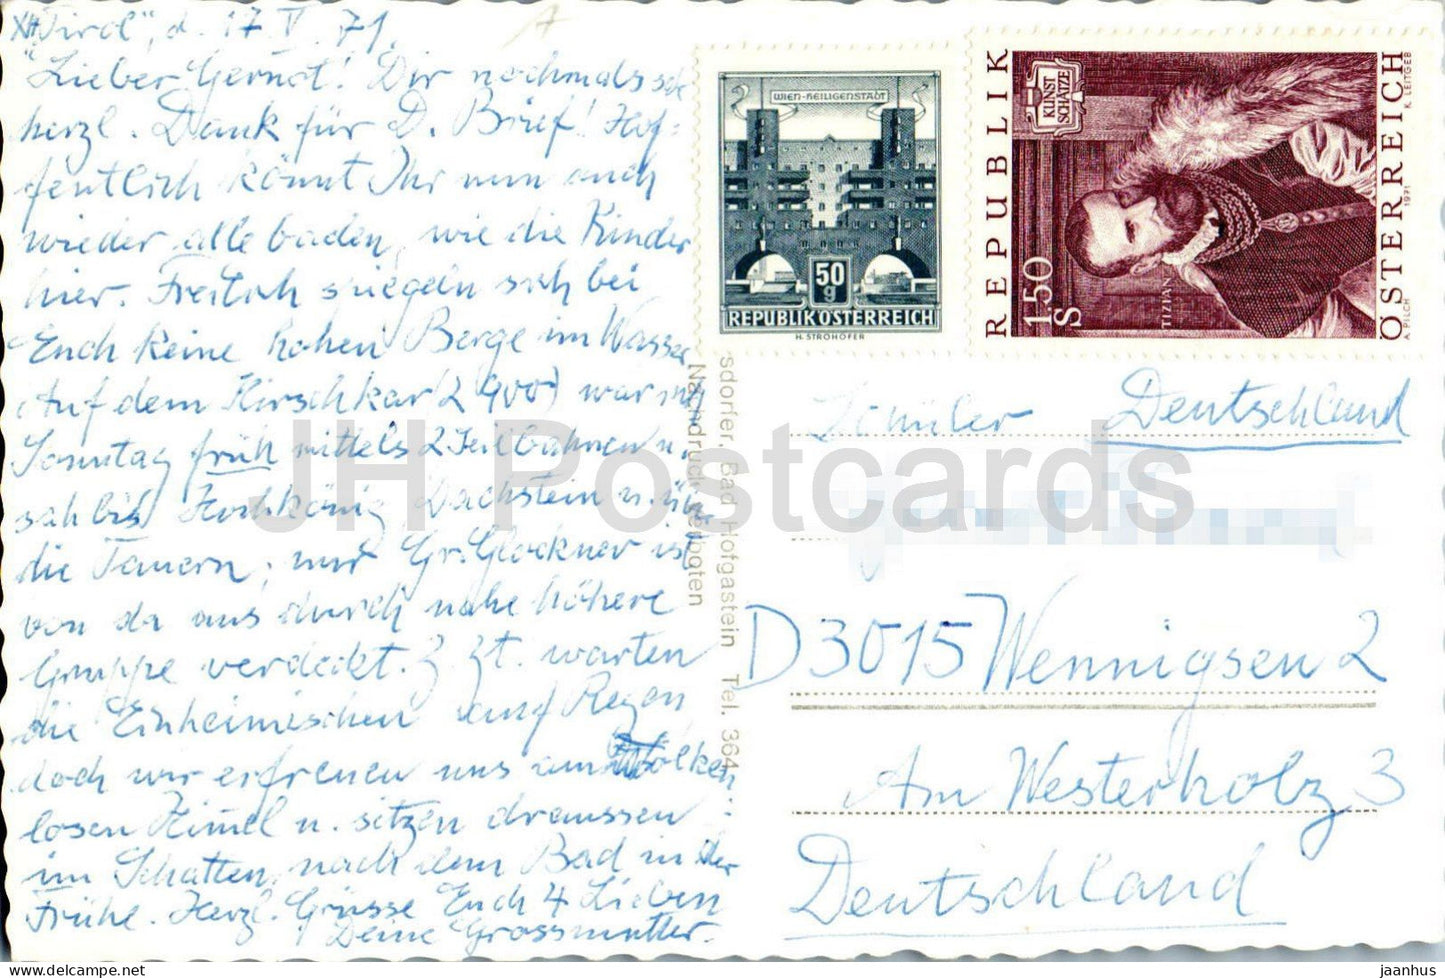 "Tirol", d. 17. V. 71.
Lieber Gernot! Dir nochmals
herzl. Dank für D. Brief! Hof-
fentlich könnt Ihr nun auch
wieder alle baden, wie die Kinder
hier. Freilich spiegeln sich bei
Euch keine hohen Berge im Wasser
Auf dem Kirschkar (2 900) war ich
Sonntag früh mittels 2 Seilbahnen u.
sah bis Hochkönig Dachstein u. über
die Tauern; nur Gr. Glockner ist
von da aus durch nahe höhere
Gruppe verdeckt. Z. Zt. warten
die Einheimischen auf Regen,
doch wir erfreuen uns am wolken-
losen Himmel u. sitzen draussen
im Schatten, nach dem Bad in der
Frühe. Herzl. Grüsse Euch 4 Lieben
Deine Grossmutter.
WIEN-HEILIGENSTADT
50
g
REPUBLIK ÖSTERREICH
H. STROHOFER
REPUBLIK
1.50
S
KUNST
SCHÄTZE
TIZIAN
ÖSTERREICH
A. PILCH 1971 K. LEITGEB
sdorfer, Bad Hofgastein Tel. 364
Nachdruck verboten
Schüler Deutschland
D 3015 Wennigsen 2
Am Westerholz 3
Deutschland
JH Postcards
jaanhus @ delcampe.net